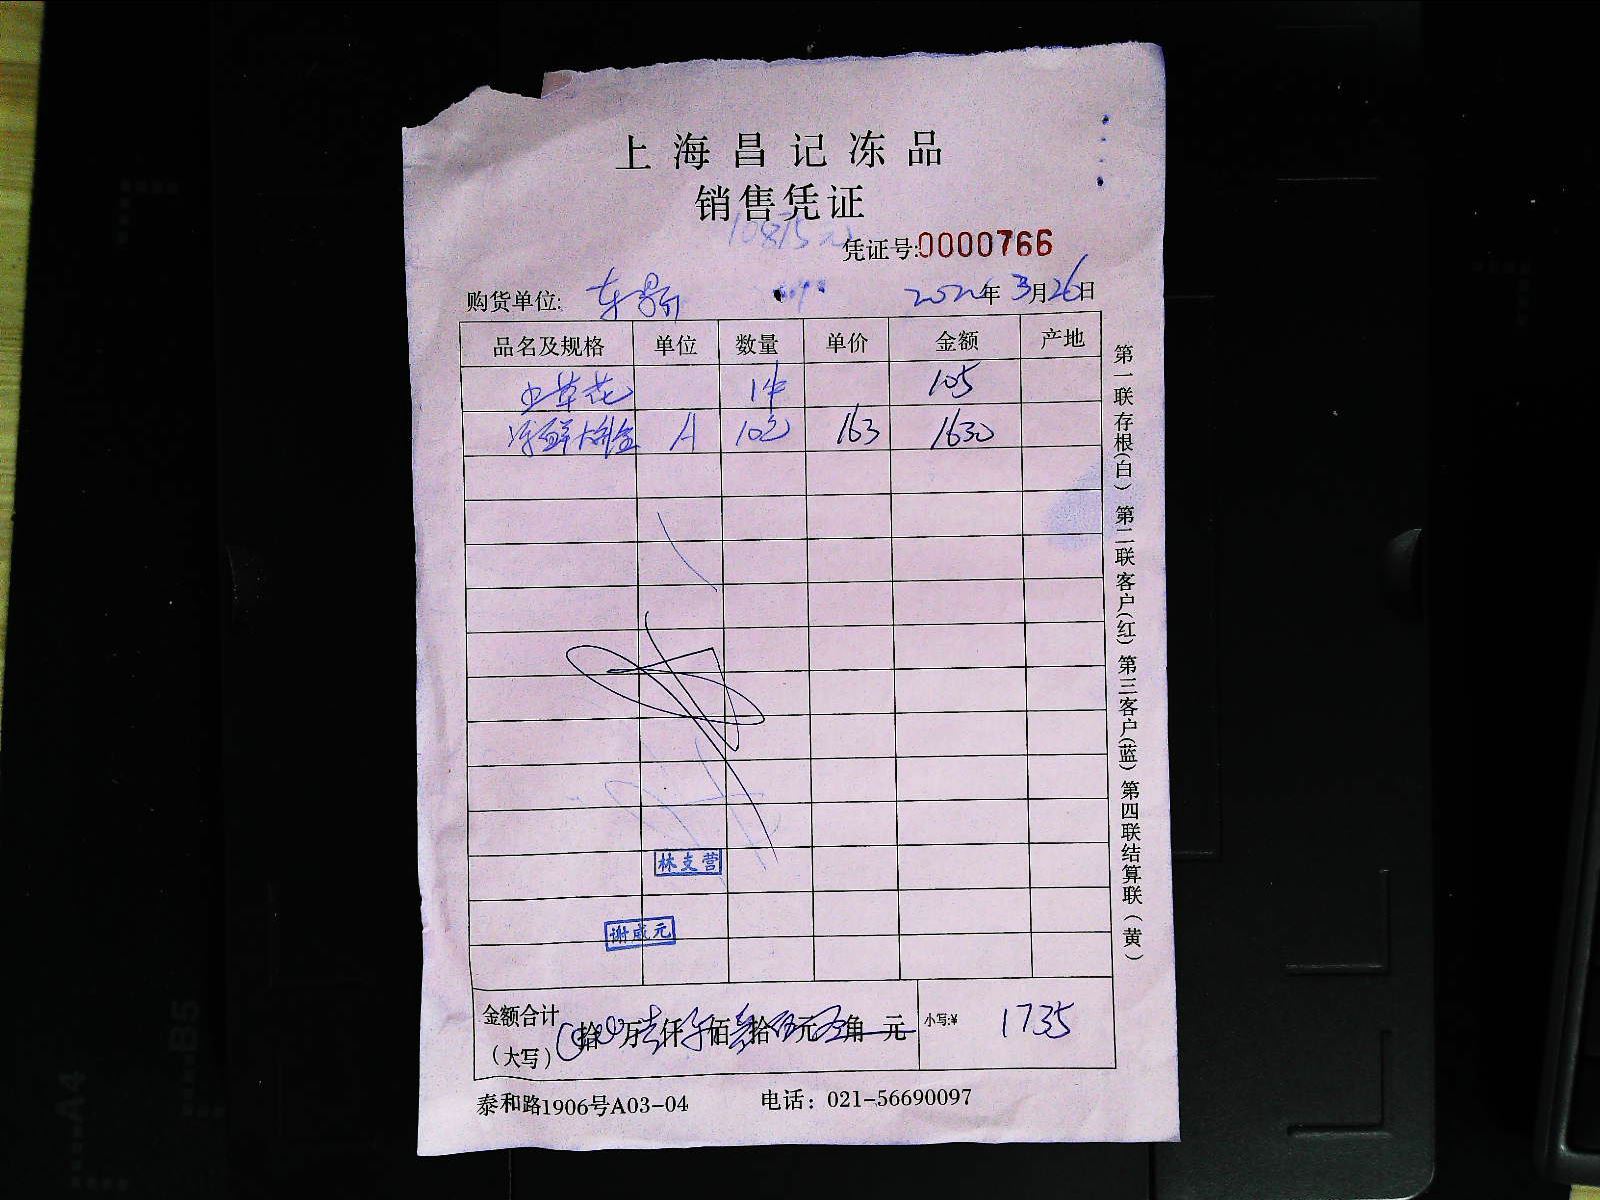 上海昌记冻品
销售凭证
凭证号:0000766
购货单位: 2022年3月26日
品名及规格 单位 数量 单价 金额 产地
虫草花 1件 105
海鲜大拼盘 A 10包 163 1630
林支营
谢咸元
金额合计
(大写) 拾 万壹仟柒佰叁拾伍元 角 元 小写:¥ 1735
泰和路1906号A03-04 电话：021-56690097
第一联存根(白) 第二联客户(红) 第三客户(蓝) 第四联结算联(黄)